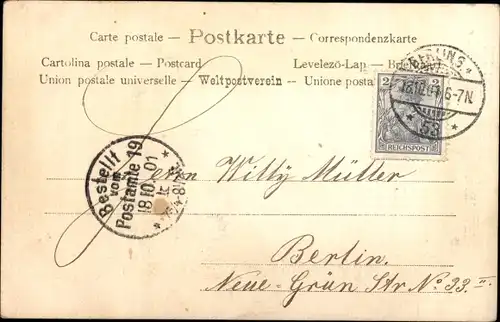 Carte postale – Postkarte – Correspondenzkarte
Cartolina postale – Postcard Levelező-Lap –
Union postale universelle – Weltpostverein – Unione postale
BERLIN S.
18.10.01 6-7N.
* 53 *
2 2
REICHSPOST
Bestellt
vom
Postamte 19
18.10.01
Herrn Willy Müller
Berlin.
Neue-Grün Str No. 33.II.